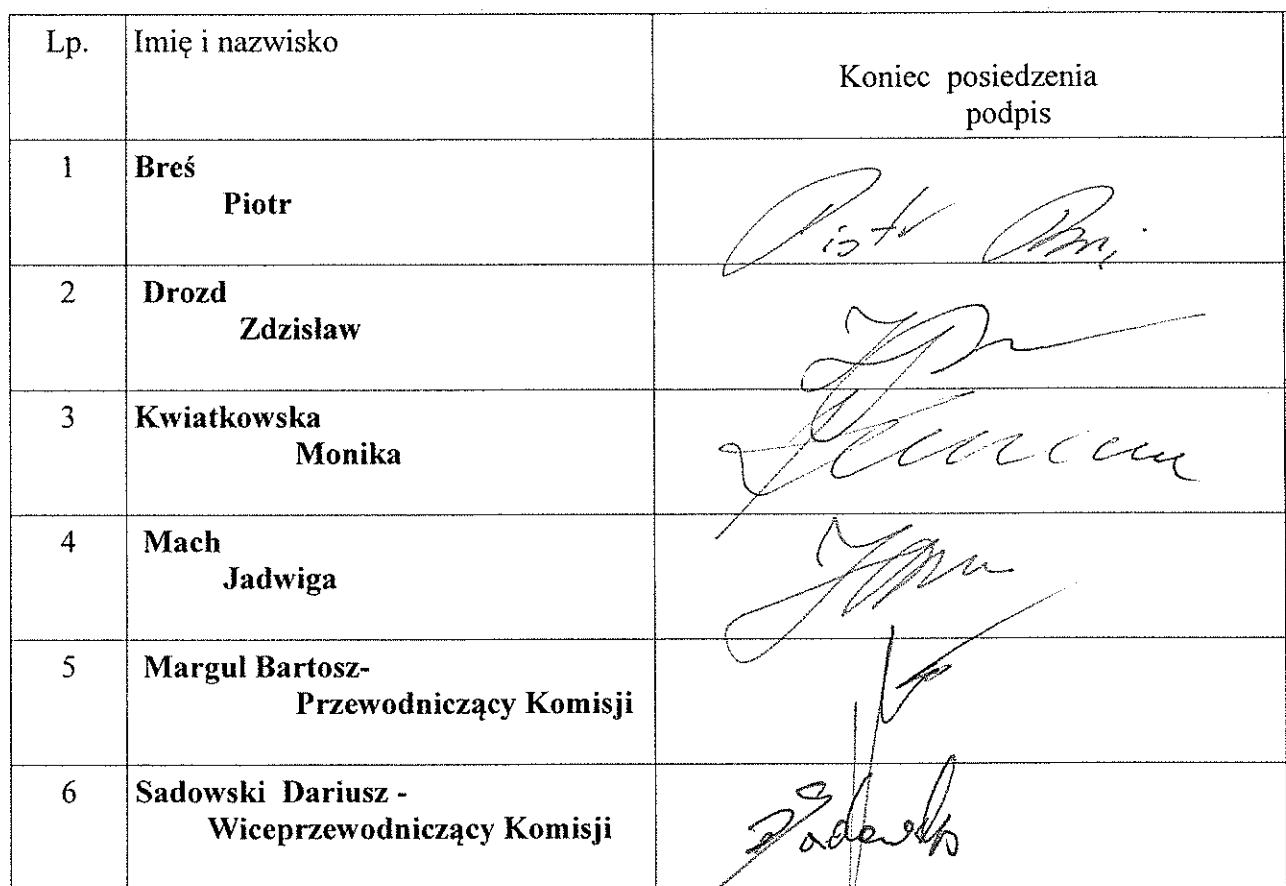 Lp. Imię i nazwisko
Koniec posiedzenia
podpis
1 Breś
Piotr
Piotr
2 Drozd
Zdzisław
3 Kwiatkowska
Monika
4 Mach
Jadwiga
5 Margul Bartosz-
Przewodniczący Komisji
6 Sadowski Dariusz -
Wiceprzewodniczący Komisji